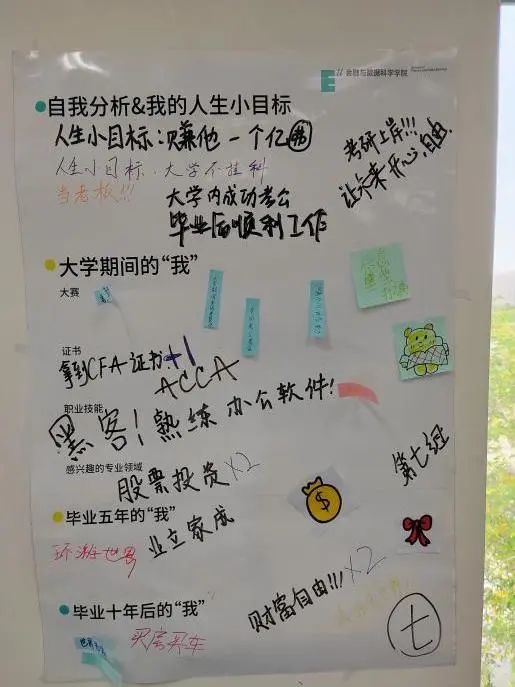 金融与数据科学学院
自我分析&我的人生小目标
人生小目标:赚他一个亿
考研上岸!!!
让未来开心,自由
人生小目标·大学不挂科
当老板!!!
大学内成功考公
毕业后顺利工作
大学期间的“我”
大赛
证书
拿到CFA证书+1
ACCA
职业技能
黑客!熟练办公软件!
感兴趣的专业领域
股票投资×2
第七组
$
毕业五年的“我”
业立家成
环游世界
财富自由!!!×2
毕业十年后的“我”
买房买车
七